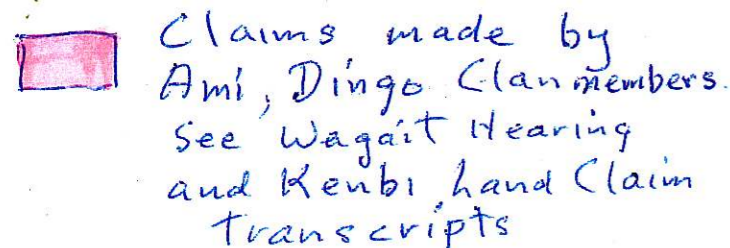 Claims made by
Ami, Dingo Clan members.
See Wagait Hearing
and Kenbi Land Claim
Transcripts